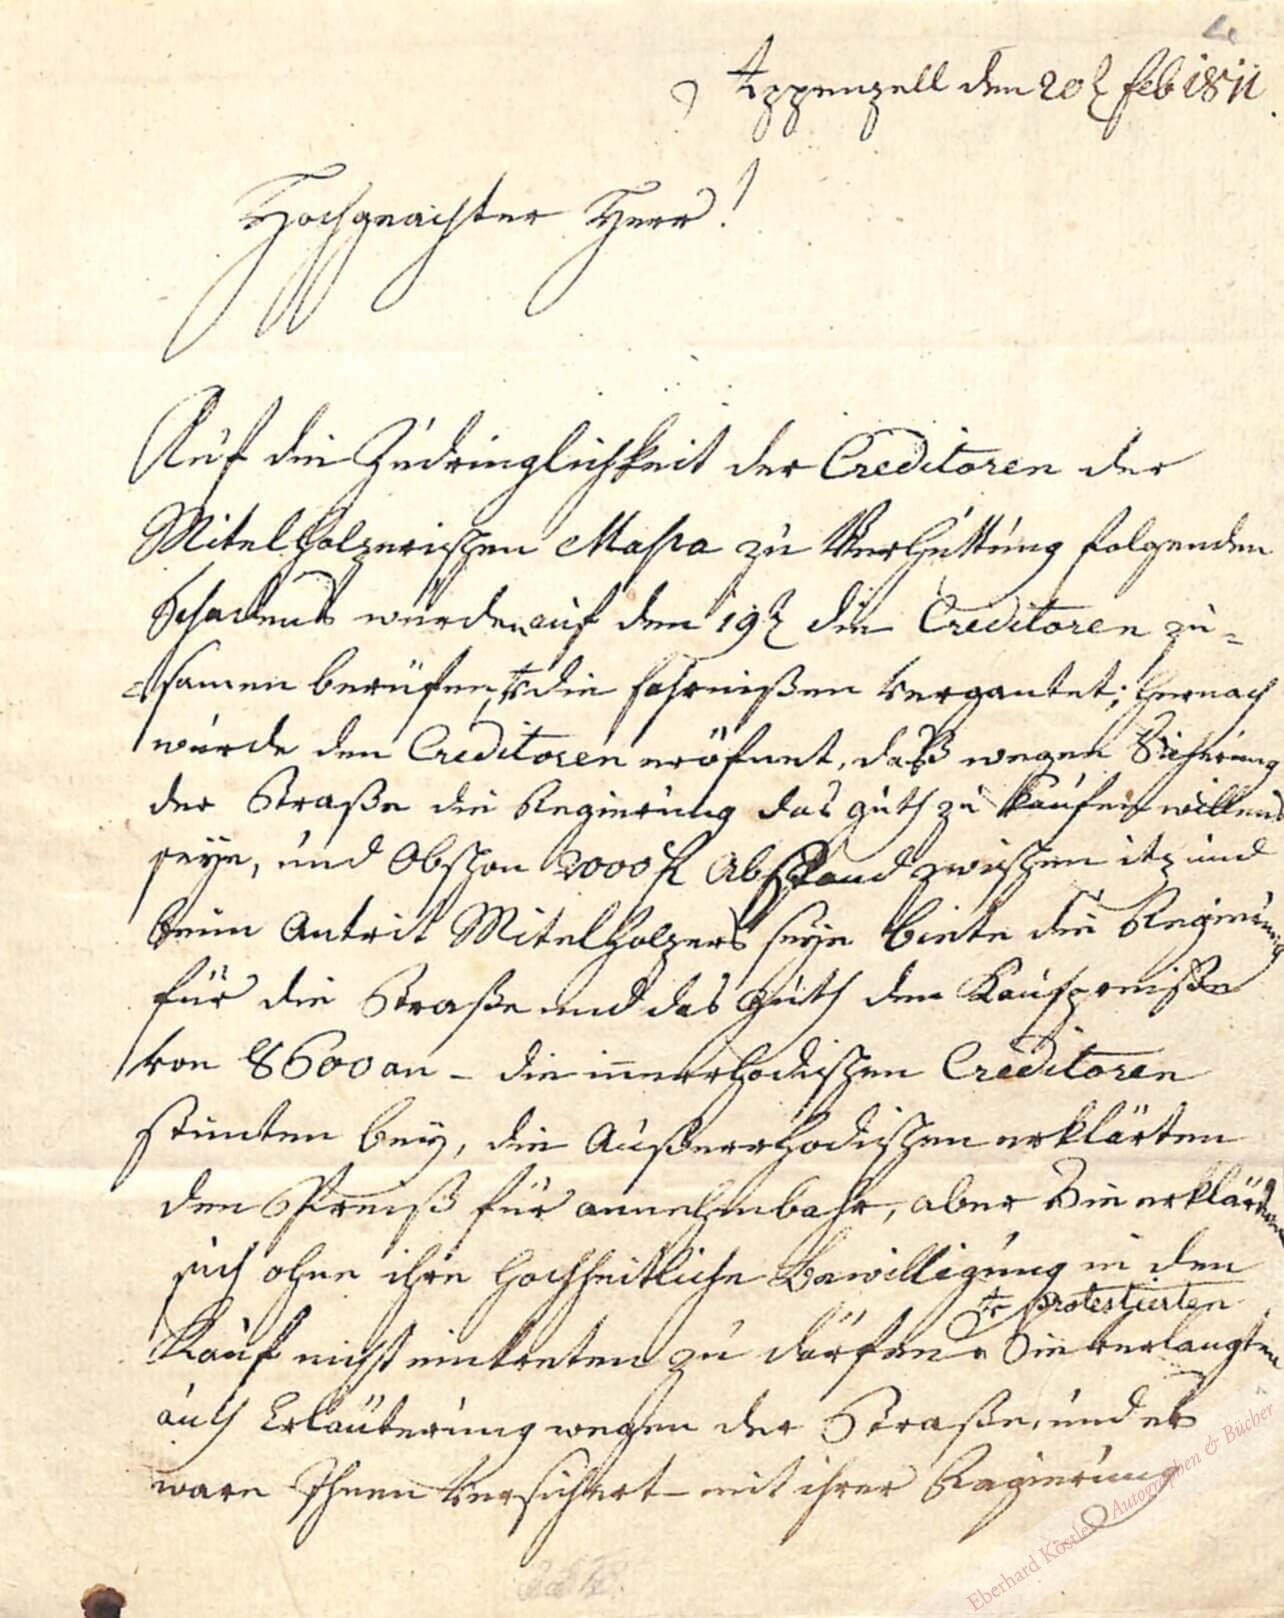 Appenzell den 20t feb 1811.
Hochgeachter Herr!
Auf die Zudringlichkeit der Creditoren der
Mitelholzerischen Massa zu Verhüttung folgenden
Schadens wurden auf den 19t die Creditoren zu=
=samen berufen, & die fahrnißen vergantet; hernach
wurde den Creditoren eröfnet, daß wegen Sicherung
der Straße die Regierung das guth zu kaufen willens
seye, und Obschon 2000 fl Abstand zwischen itz und
beim Antrit Mitelholzers seye biete die Regierung
für die Straße und das Guth den Kaufpreiße
von 8600 an – die innerrhodischen Creditoren
stimten bey, die Außerrhodischen erklärten
den Preiß für annehmbahr, aber Sie erklärten
sich ohne ihre hochheitliche Bewilligung in den
& protestierten
Kauf nicht eintreten zu dörfen Sie verlangten
auch Erläuterung wegen der Straße, und es
ware Ihnen versichert – mit ihrer Regierung
Eberhard Köstler Autographen & Bücher